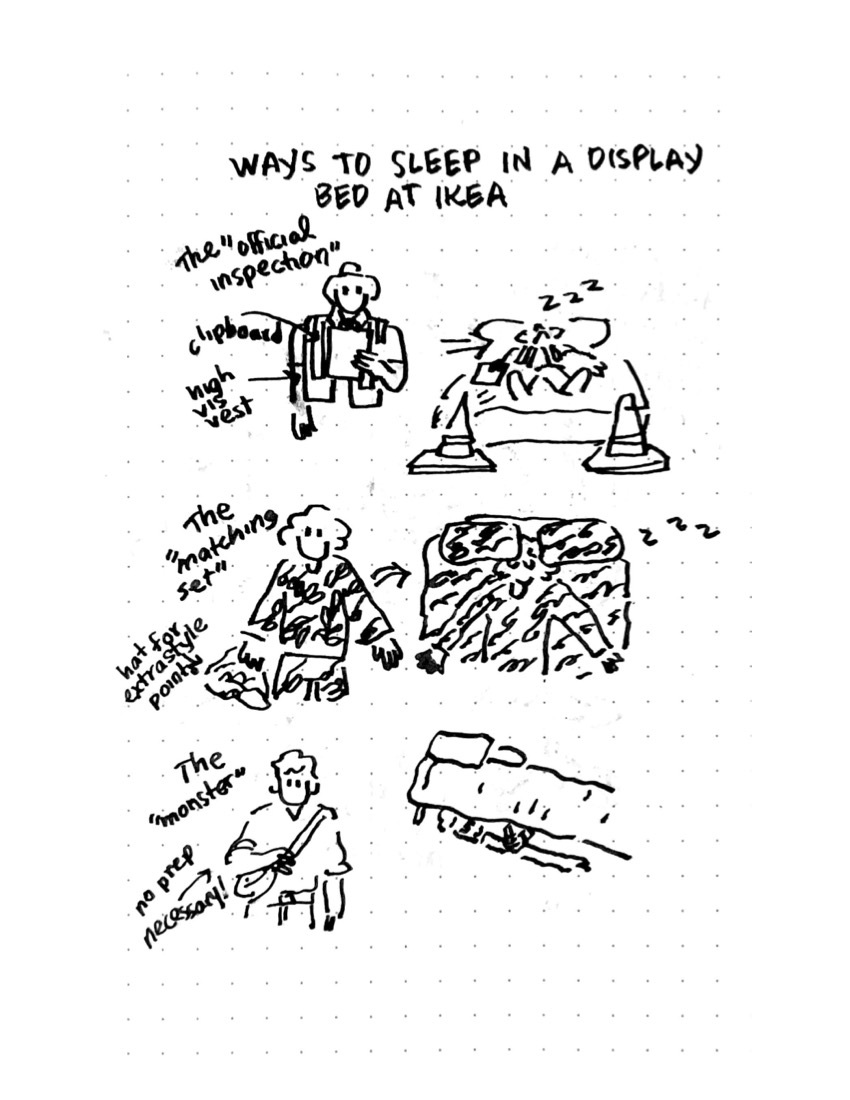 WAYS TO SLEEP IN A DISPLAY
BED AT IKEA
The "official
inspection"
clipboard
high
vis
vest
z z z
The
"matching
set"
z z z
hat for
extra style
points
The
"monster"
no prep
necessary!